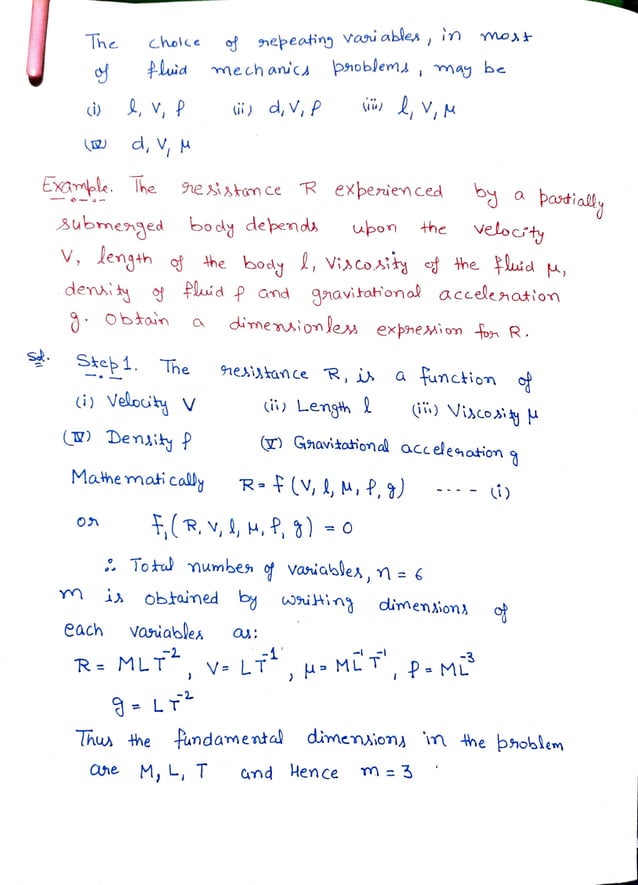 The choice of repeating variables, in most
of fluid mechanics problems, may be
(i) l, V, ρ (ii) d, V, ρ (iii) l, V, μ
(iv) d, V, μ
Example. The resistance R experienced by a partially
submerged body depends upon the velocity
V, length of the body l, Viscosity of the fluid μ,
density of fluid ρ and gravitational acceleration
g. Obtain a dimensionless expression for R.
Sol. Step 1. The resistance R, is a function of
(i) Velocity V (ii) Length l (iii) Viscosity μ
(iv) Density ρ (v) Gravitational acceleration g
Mathematically R = f (V, l, μ, ρ, g) ---- (i)
or f₁ (R, V, l, μ, ρ, g) = 0
∴ Total number of variables, n = 6
m is obtained by writting dimensions of
each variables as:
R = MLT⁻², V = LT⁻¹, μ = ML⁻¹T⁻¹, ρ = ML⁻³
g = LT⁻²
Thus the fundamental dimensions in the problem
are M, L, T and Hence m = 3